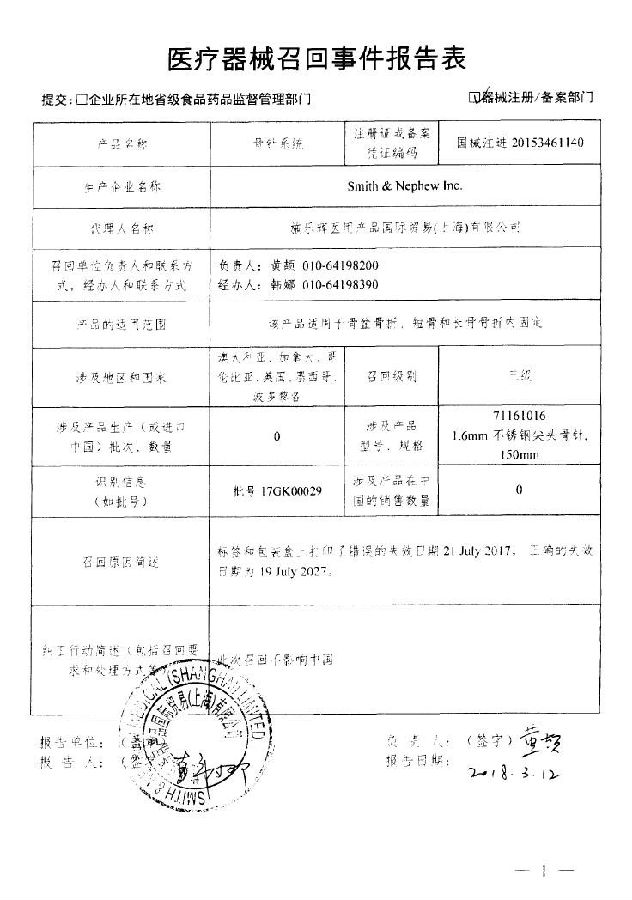 医疗器械召回事件报告表
提交：□企业所在地省级食品药品监督管理部门 ☑器械注册/备案部门
产品名称
骨针系统
注册证或备案
凭证编码
国械注进 20153461140
生产企业名称
Smith & Nephew Inc.
代理人名称
施乐辉医用产品国际贸易(上海)有限公司
召回单位负责人和联系方
式，经办人和联系方式
负责人：黄颉 010-64198200
经办人：韩娜 010-64198390
产品的适用范围
该产品适用于骨盆骨折、短骨和长骨骨折内固定
涉及地区和国家
澳大利亚、加拿大、哥
伦比亚、英国、墨西哥、
波多黎各
召回级别
三级
涉及产品生产（或进口
中国）批次、数量
0
涉及产品
型号、规格
71161016
1.6mm 不锈钢尖头骨针,
150mm
识别信息
（如批号）
批号 17GK00029
涉及产品在中
国的销售数量
0
召回原因简述
标签和包装盒上打印了错误的失效日期 21 July 2017， 正确的失效
日期为 19 July 2027。
纠正行动简述（包括召回要
求和处理方式等
此次召回不影响中国
报告单位：（盖
报 告 人：（签
负 责 人：（签字）黄颉
报告日期：
2018.3.12
MEDICAL (SHANGHAI) LIMITED
SMITH &
— 1 —